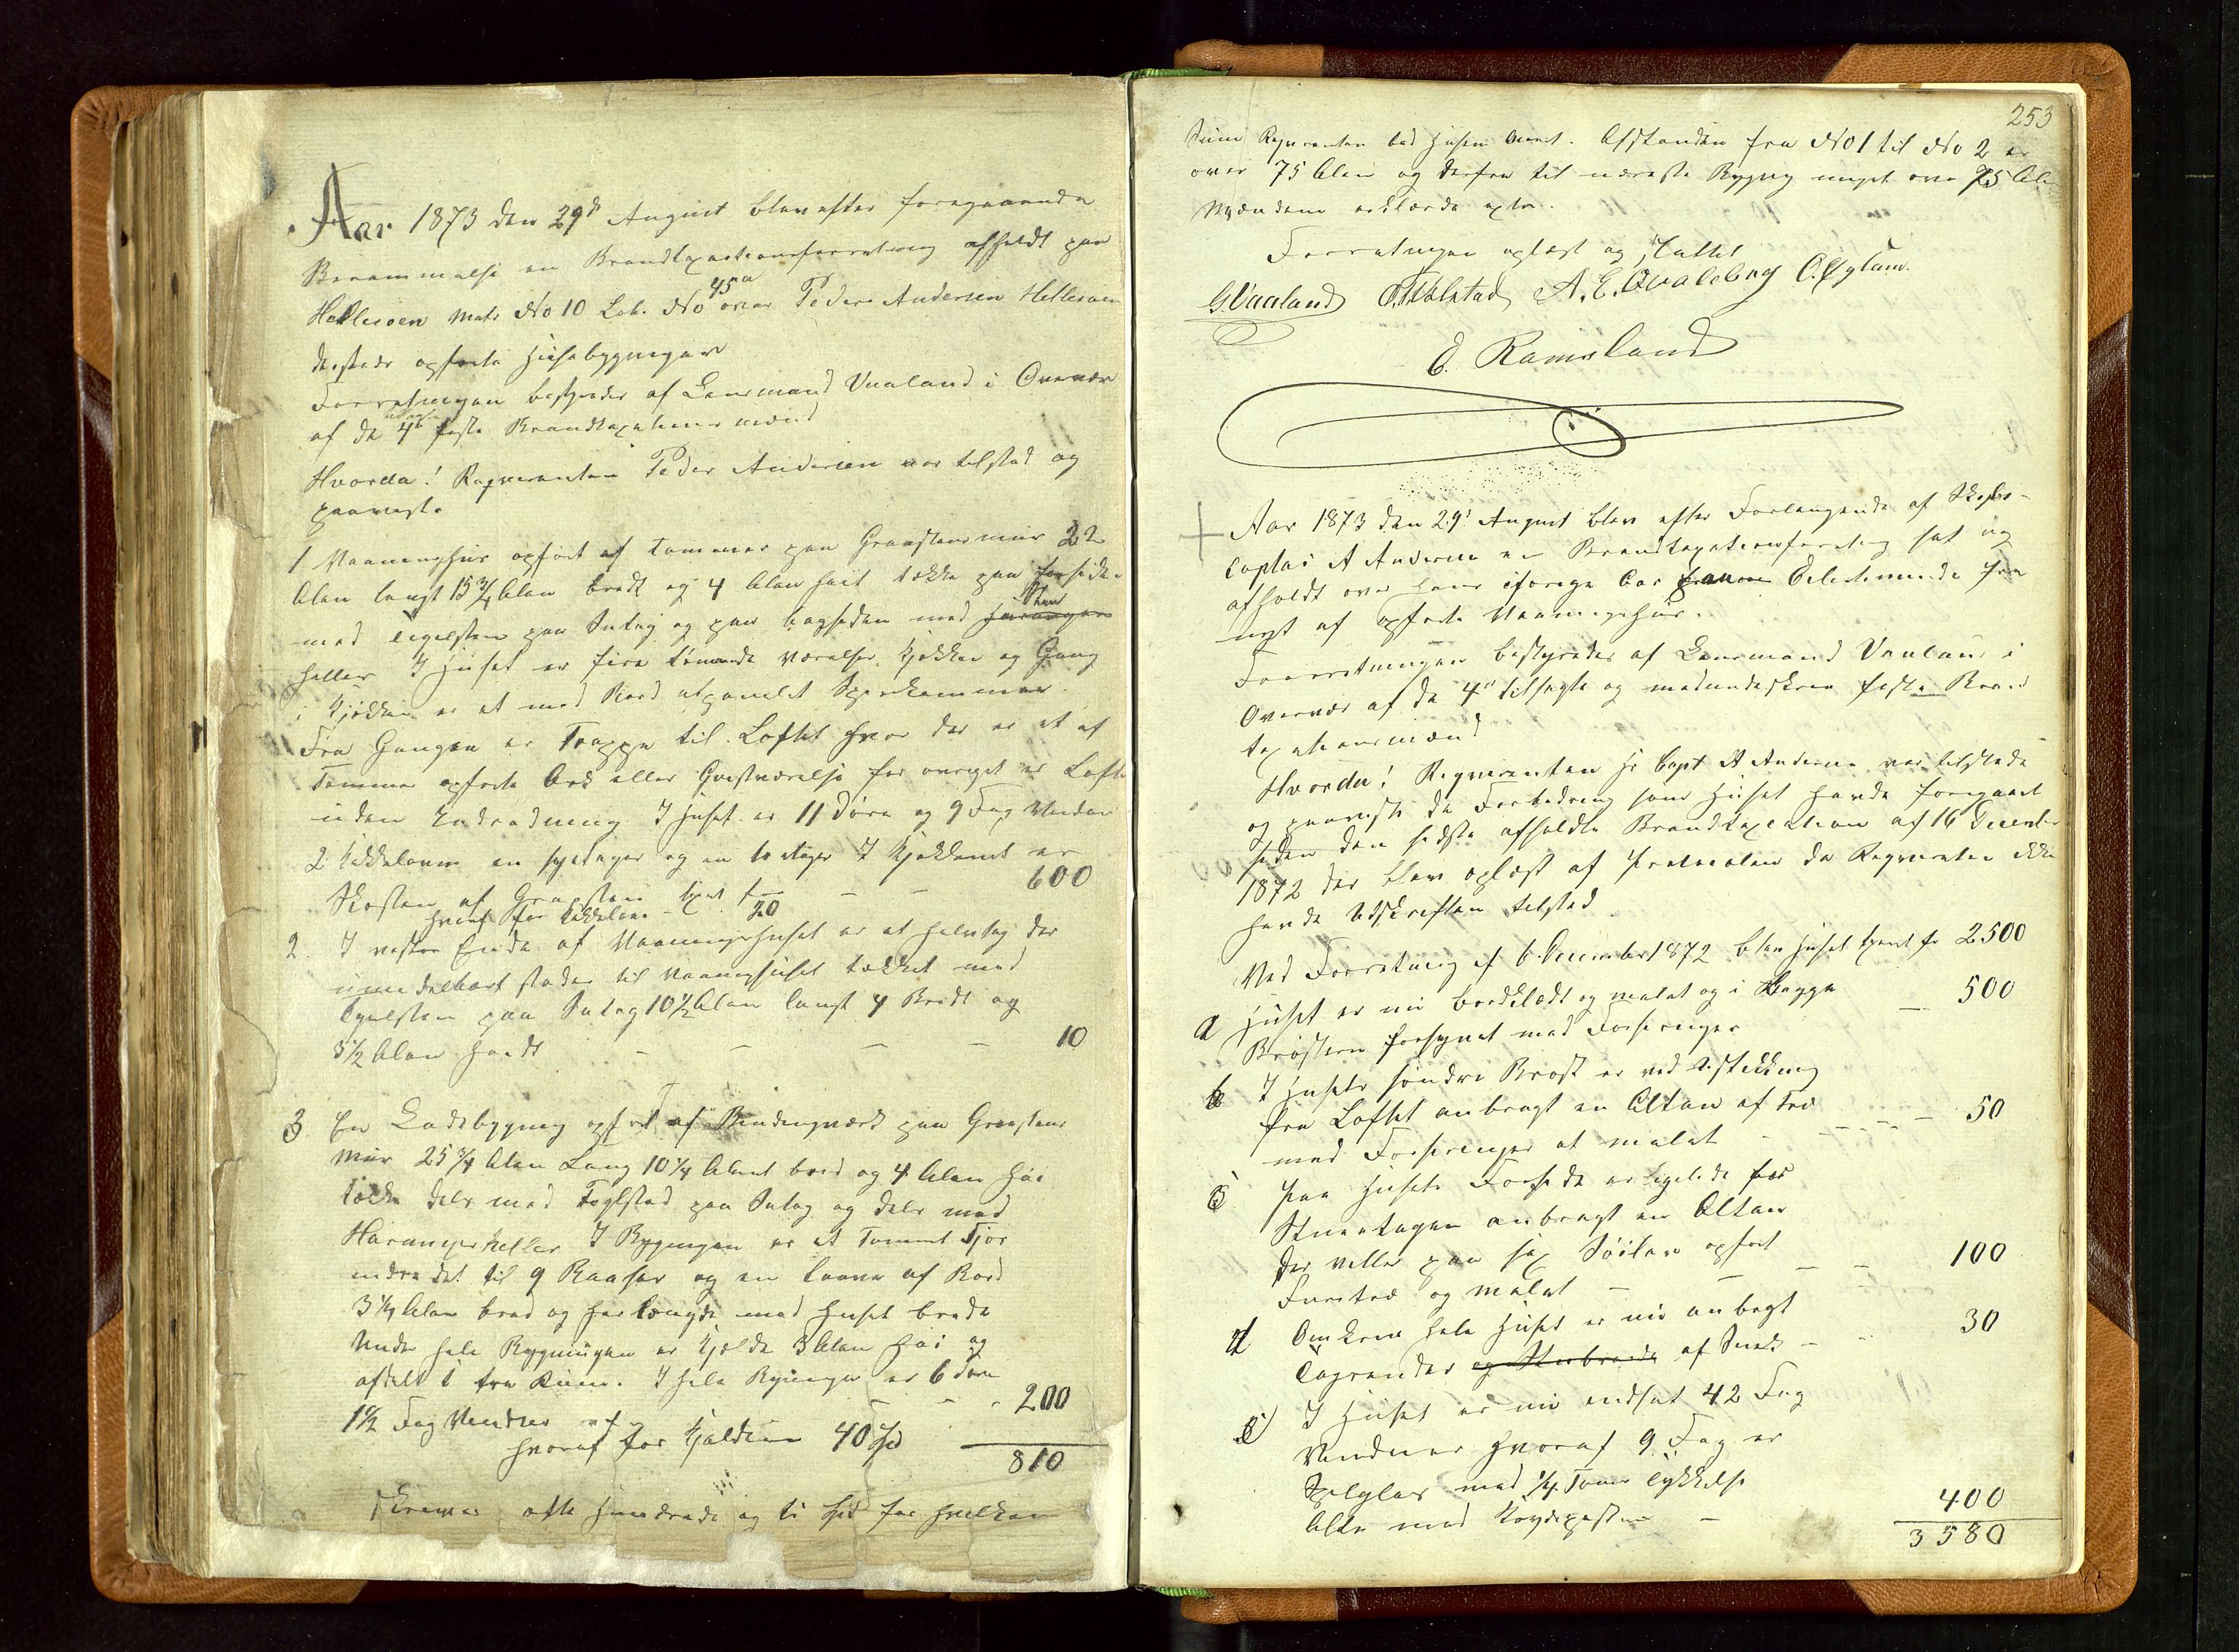 Aar 1873 den 29de August blev efter foregaaende
Berammelse en Brandtaxationsforretning afholdt paa
Hellesoen Matr No 10 Løb. No 45a over Peder Andersen Hellesoen
dersteds opførte Huusebygninger
Forretningen bestyredes af Lensmand Vaaland i Overvær
af de 4 faste Brandtaxationsmænd
Hvorda! Reqvirenten Peder Andersen var tilsted og
paaviste
1 Vaaningshus opført af Tømmer paa Graastensmur 22
Alen langt 13 3/4 Alen bredt og 4 Alen høit tække paa forsiden
med Tegelsten paa Sutag og paa bagsiden med Sten
heller I Huset er fire tømrede Værelser, Kjøkken og Gang
i Kjøkken er et med Bord afpanelet Spisekammer.
Fra Gangen er Trappe til Loftet hvor der er et af
Tømmer opførte Ark eller Qvistværelse for øvrigt er Loftet
uden Indredning I Huset er 11 Døre og 9 Fag Vinduer
2 Kakkelovne en og en to etages I Kjøkkenet er
Skorsten af Graasten taxt f - - 600
hvoraf for Kakkelovne 20
2. I vestre Ende af Vaaningshuset er et Halvtag der
umiddelbart støder til Vaaningshuset tækket med
Tegelsten paa Sutag 10 1/2 Alen langt 4 Bredt og
3 1/2 Alen høidt - - - - 10
3 En Ladebygning opført af Bindingsværk paa Graastens
Muur 25 3/4 Alen Lang 10 1/4 Alen bred og 4 Alen høi
tække dels med Teglsten paa Sutag og dels med
Harangerheller I Bygningen er et Tømret Fjøs
indredet til 9 Baaser og en Laave af Bord
3 1/4 Alen bred og har længde med Huset brede
Under hele Bygningen er Kjælder 3 Alen høi og
afdelt i tre Rum. I hele Bygningen er 6 Døre
1 1/2 Fag Vinduer - - - 200
hvoraf for Kjælderen 40 Spd
810
Skriver otte Hundrede og ti Spd for hvilken
253
Sum Reqvirenten bad Husene Assureret. Afstanden fra No 1 til No 2 er
over 75 Alen og derfra til næreste Bygning meget over 75 Alen
Mændene erklærede
Forretningen oplæst og sluttet
G. Vaaland A. E. Qvaleberg
E. Ramsland
Aar 1873 den 29de August blev efter Forlangende af Skibs-
captai A Andersen en Brandtaxationsforretning sat og
afholdt over hans iforige Aar
nyt af opførte Vaaningshus.
Forretningen bestyredes af Lensmand Vaaland i
Overvær af de 4 tilsagte og medunderskrevne faste Brand
taxationsmænd
Hvorda! Reqvirenten Hr Capt A Andersen var tilstede
og paaviste de Forbedring som Huset havde foregaaet
siden den sidste afholdte Brandtaxation af 16 December
1872 der blev oplæst af Protocolen da Reqvirenten ikke
havde Udskriften tilsted
Ved Forretning af 6 December 1872 blev Huset taxeret for 2500
a Huset er nu bordklædt og malet og i Begge - 500
Brøstene forsynet med Forsiringer
b I Husets søndre Brøst er ved Udstikking
fra Loftet anbragt en Altan af Træ
med Forsiringer at malet - - - - 50
c Paa Husets Forside er ligelede for
Stueetagen anbragt en Altan
der viller paa sex Søiler opført
Furetræ og malet - - - - 100
d Omkring hele Huset er nu anbragt
Tagrender og af Sink - - 30
e) I Huset er nu indsat 42 Fag
Vinduer hvoraf 9 Fag er
Speilglas med 1/4 Toms Tykkelse
Alle med - 400
3580